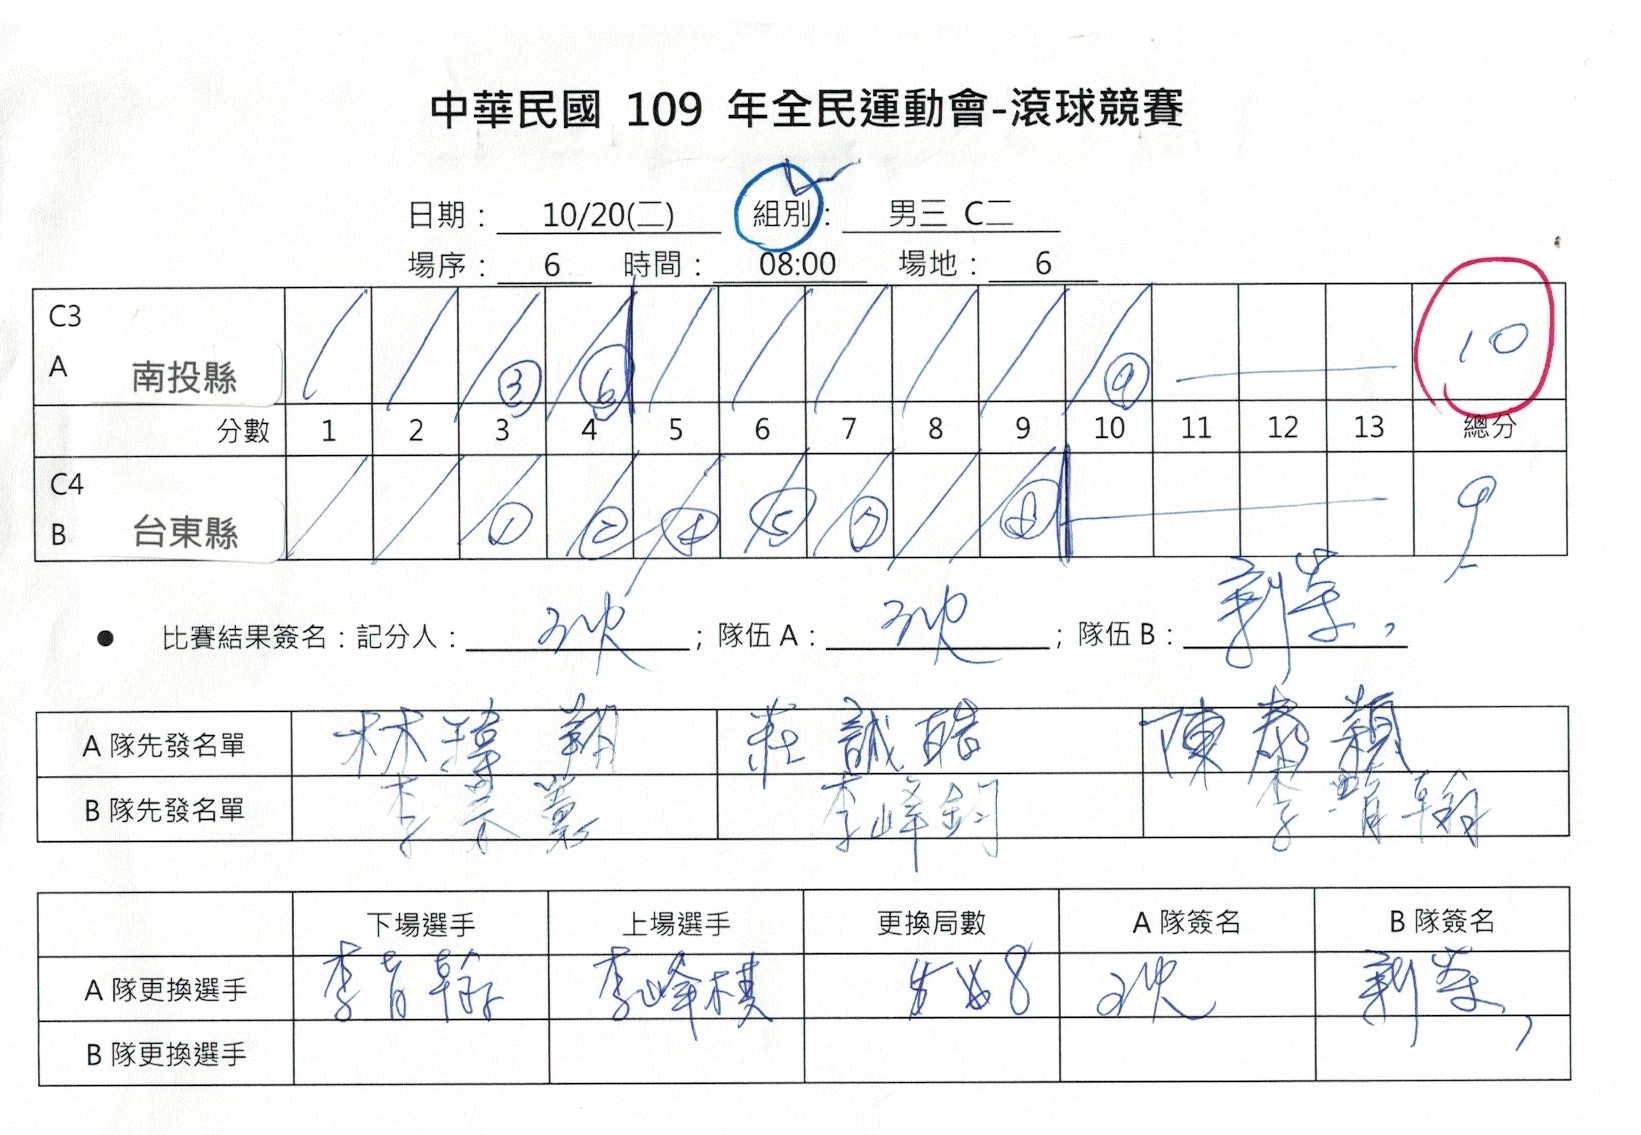 中華民國 109 年全民運動會-滾球競賽
日期： 10/20(二) 組別： 男三 C二
場序： 6 時間： 08:00 場地： 6
C3
A 南投縣 ③ ⑥ ⑨ 10
分數 1 2 3 4 5 6 7 8 9 10 11 12 13 總分
C4
B 台東縣 ① ② ④ ⑤ ⑦ ⑧ 9
● 比賽結果簽名：記分人： ；隊伍 A： ；隊伍 B：
A 隊先發名單 林瑋翔 莊誠皓 陳泰穎
B 隊先發名單 李 李峰 李青翰
下場選手 上場選手 更換局數 A 隊簽名 B 隊簽名
A 隊更換選手 李青翰 李峰 8
B 隊更換選手